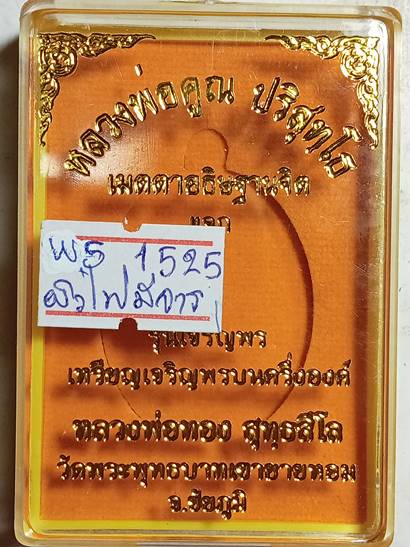 หลวงพ่อคูณ ปริสุทโธ
เมตตาอธิษฐานจิต
แจก
พร 1525
ผิวไฟมีจาร
รุ่นเจริญพร
เหรียญเจริญพรบนครึ่งองค์
หลวงพ่อทอง สุทธสีโล
วัดพระพุทธบาทเขายายหอม
จ.ชัยภูมิ